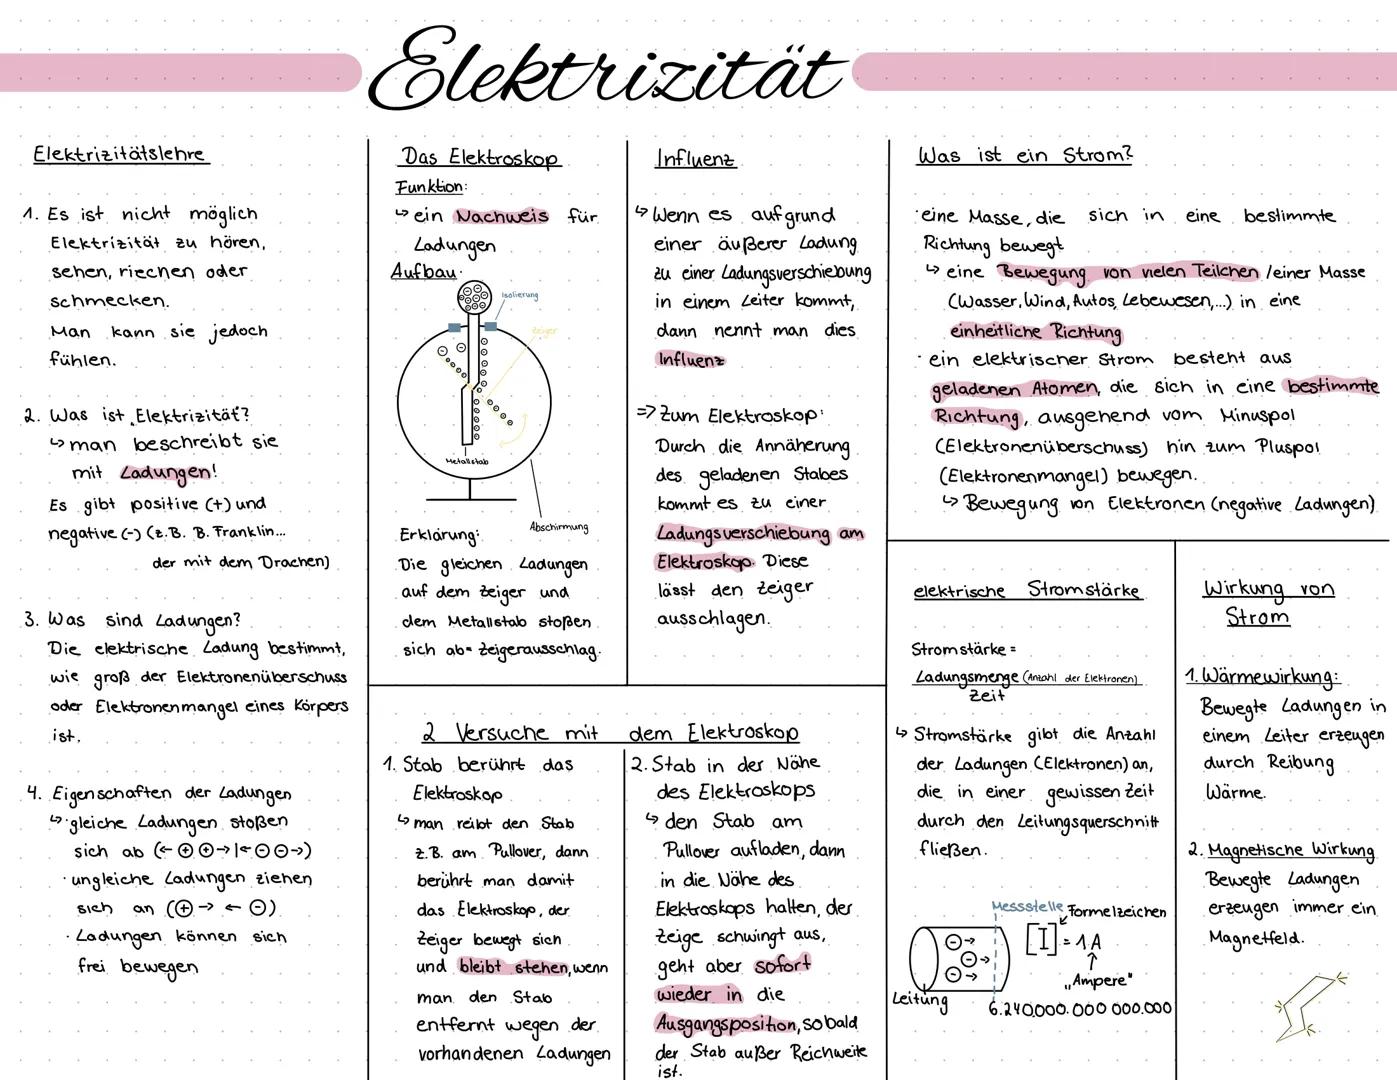 Elektrizität
Elektrizitätslehre
1. Es ist nicht möglich
Elektrizität zu hören,
sehen, riechen oder
schmecken.
Man kann sie jedoch
fühlen.
2. Was ist Elektrizität?
↳ man beschreibt sie
mit Ladungen!
Es gibt positive (+) und
negative (-) (z.B. B. Franklin...
der mit dem Drachen)
3. Was sind Ladungen?
Die elektrische Ladung bestimmt,
wie groß der Elektronenüberschuss
oder Elektronenmangel eines Körpers
ist.
4. Eigenschaften der Ladungen
↳ · gleiche Ladungen stoßen
sich ab (← ⊕ ⊕ → | ← ⊖ ⊖ →)
· ungleiche Ladungen ziehen
sich an (⊕ → ← ⊖)
· Ladungen können sich
frei bewegen
Das Elektroskop
Funktion:
↳ ein Nachweis für
Ladungen
Aufbau:
Isolierung
Zeiger
Metallstab
Abschirmung
Erklärung:
Die gleichen Ladungen
auf dem Zeiger und
dem Metallstab stoßen
sich ab = Zeigerausschlag.
Influenz
↳ Wenn es aufgrund
einer äußerer Ladung
zu einer Ladungsverschiebung
in einem Leiter kommt,
dann nennt man dies
Influenz
=> Zum Elektroskop:
Durch die Annäherung
des geladenen Stabes
kommt es zu einer
Ladungsverschiebung am
Elektroskop. Diese
lässt den Zeiger
ausschlagen.
2 Versuche mit dem Elektroskop
1. Stab berührt das
Elektroskop
↳ man reibt den Stab
z.B. am Pullover, dann
berührt man damit
das Elektroskop, der
Zeiger bewegt sich
und bleibt stehen, wenn
man den Stab
entfernt wegen der
vorhandenen Ladungen
2. Stab in der Nähe
des Elektroskops
↳ den Stab am
Pullover aufladen, dann
in die Nähe des
Elektroskops halten, der
Zeige schwingt aus,
geht aber sofort
wieder in die
Ausgangsposition, sobald
der Stab außer Reichweite
ist.
Was ist ein Strom?
· eine Masse, die sich in eine bestimmte
Richtung bewegt
↳ eine Bewegung von vielen Teilchen / einer Masse
(Wasser, Wind, Autos, Lebewesen,...) in eine
einheitliche Richtung
· ein elektrischer Strom besteht aus
geladenen Atomen, die sich in eine bestimmte
Richtung, ausgehend vom Minuspol
(Elektronenüberschuss) hin zum Pluspol
(Elektronenmangel) bewegen.
↳ Bewegung von Elektronen (negative Ladungen)
elektrische Stromstärke
Stromstärke =
Ladungsmenge (Anzahl der Elektronen)
Zeit
↳ Stromstärke gibt die Anzahl
der Ladungen (Elektronen) an,
die in einer gewissen Zeit
durch den Leitungsquerschnitt
fließen.
Messstelle
Formelzeichen
[I] = 1 A
„Ampere"
Leitung
6.240.000.000 000.000
Wirkung von
Strom
1. Wärmewirkung:
Bewegte Ladungen in
einem Leiter erzeugen
durch Reibung
Wärme.
2. Magnetische Wirkung
Bewegte Ladungen
erzeugen immer ein
Magnetfeld.